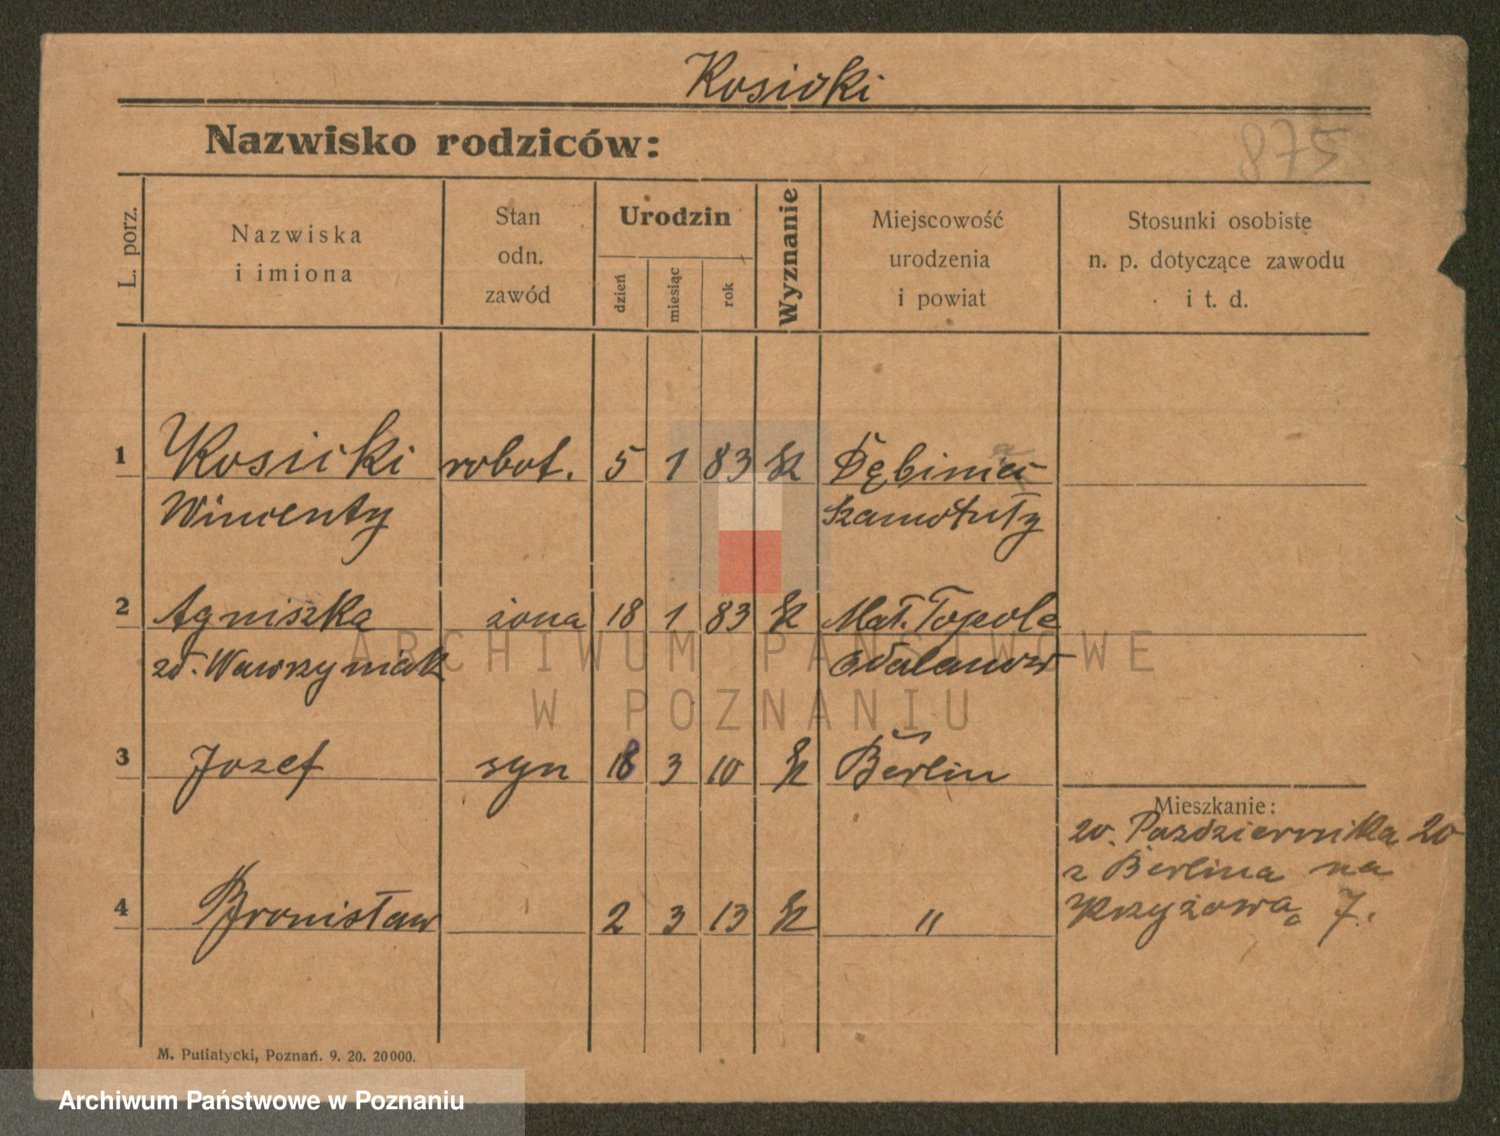 Kosicki
Nazwisko rodziców:
875
L. porz.
Nazwiska
i imiona
Stan
odn.
zawód
Urodzin
dzień
miesiąc
rok
Wyznanie
Miejscowość
urodzenia
i powiat
Stosunki osobiste
n. p. dotyczące zawodu
i t. d.
1 Kosicki robot. 5 1 83 k
Wincenty Szamotuły
2 Agniszka żona 18 1 83 k Mał. Topole
zd. Wawrzyniak Odalanow
3 Jozef syn 18 3 10 k Berlin
Mieszkanie:
20. Pazdziernika 20
z Berlina na
Krzyżową 7.
4 Bronisław 2 3 13 k "
M. Putiatycki, Poznań. 9. 20. 20000.
ARCHIWUM PAŃSTWOWE
W POZNANIU
Archiwum Państwowe w Poznaniu